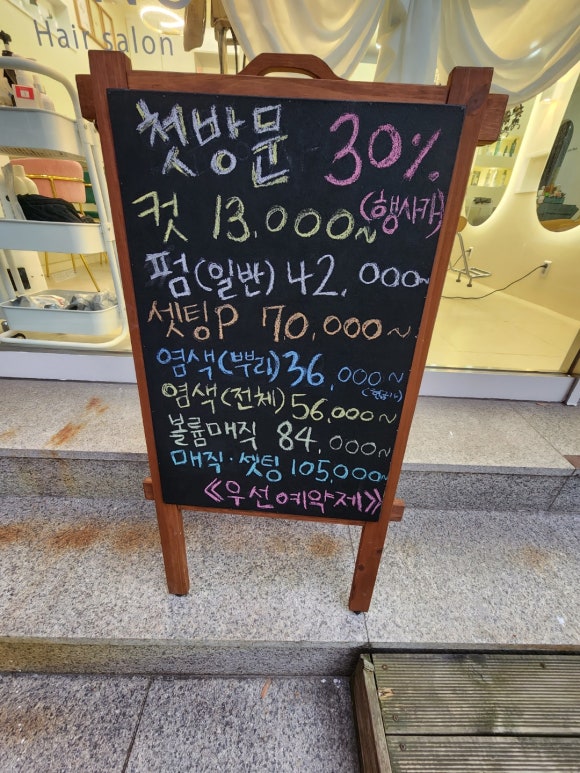 Hair salon
첫방문 30%
컷 13,000~ (행사가)
펌(일반) 42,000~
셋팅P 70,000~
염색(뿌리) 36,000~
염색(전체) 56,000~
볼륨매직 84,000~
매직·셋팅 105,000~
《우선예약제》